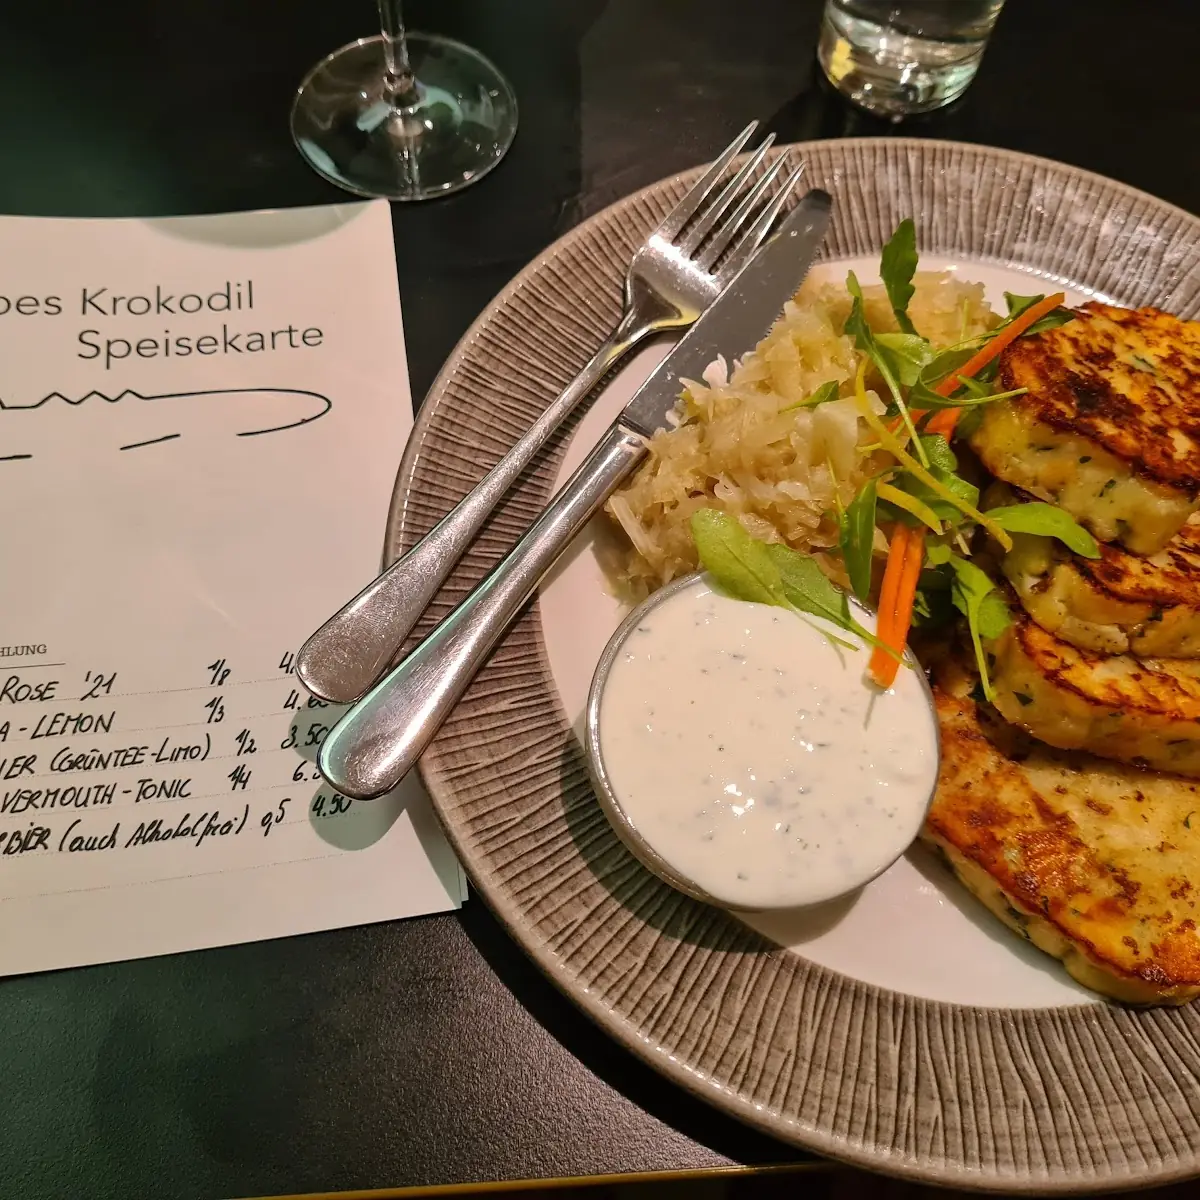 Krokodil
Speisekarte
ROSE '21 1/8 4.
- LEMON 1/3 4.
(GRÜNTEE-LIMO) 1/2 3.50
VERMOUTH - TONIC 1/4 6.
BIER (auch Alkoholfrei) 0,5 4.50